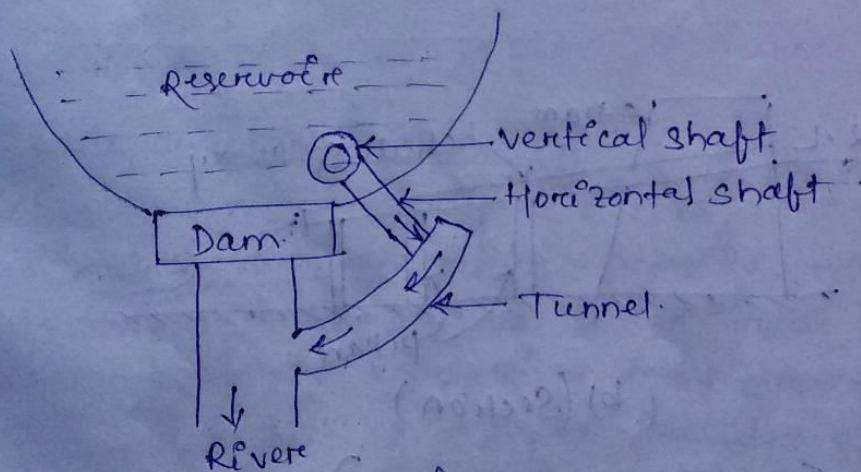 Reservoire
vertical shaft
Horizontal shaft
Dam
Tunnel.
River